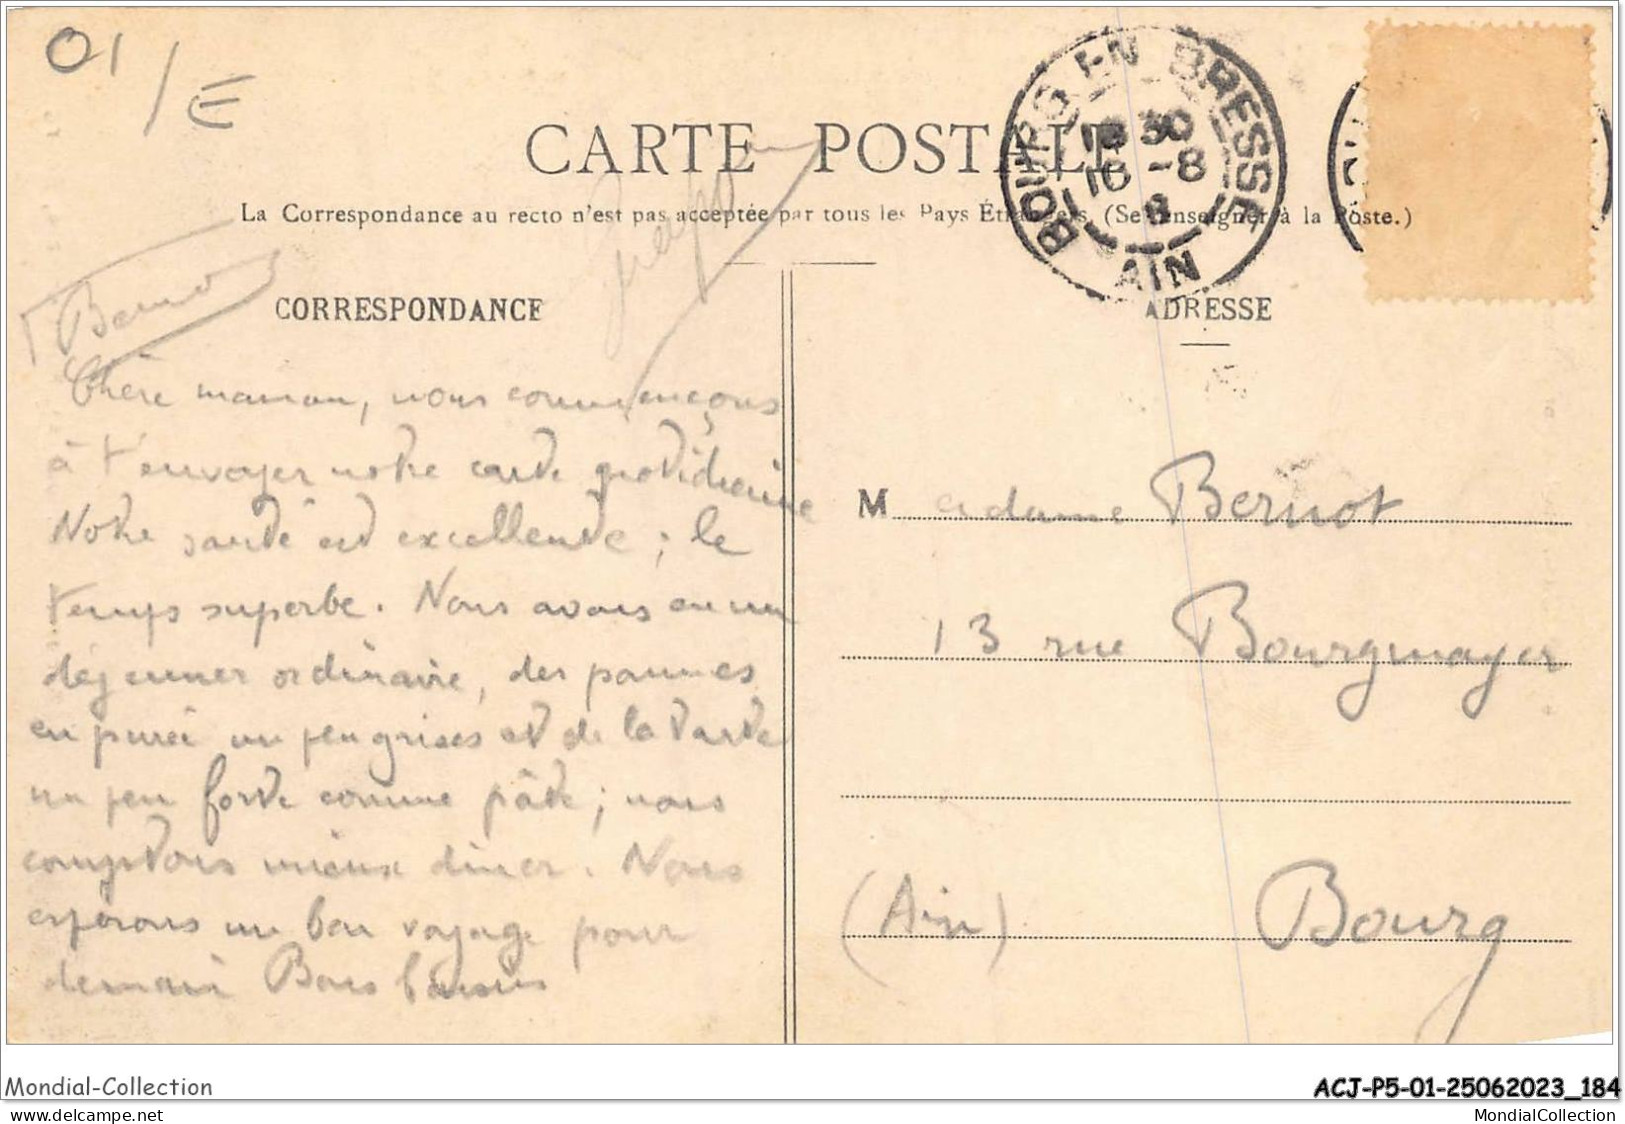 01 / E
CARTE POSTALE
La Correspondance au recto n'est pas acceptée par tous les Pays Étrangers. (Se renseigner à la Poste.)
BOURG EN BRESSE
18 30
16 -8
8
AIN
CORRESPONDANCE
ADRESSE
Chère maman, nous commençons
à t'envoyer notre carte quotidienne
Notre santé est excellente ; le
temps superbe. Nous avons eu un
déjeuner ordinaire, des pommes
en purée un peu grises et de la tarte
un peu forte comme pâte ; nous
comptons mieux dîner. Nous
espérons un bon voyage pour
demain Bons baisers
Bernot
Madame Bernot
13 rue Bourgmayer
(Ain) Bourg
Mondial-Collection
ACJ-P5-01-25062023_184
www.delcampe.net
MondialCollection